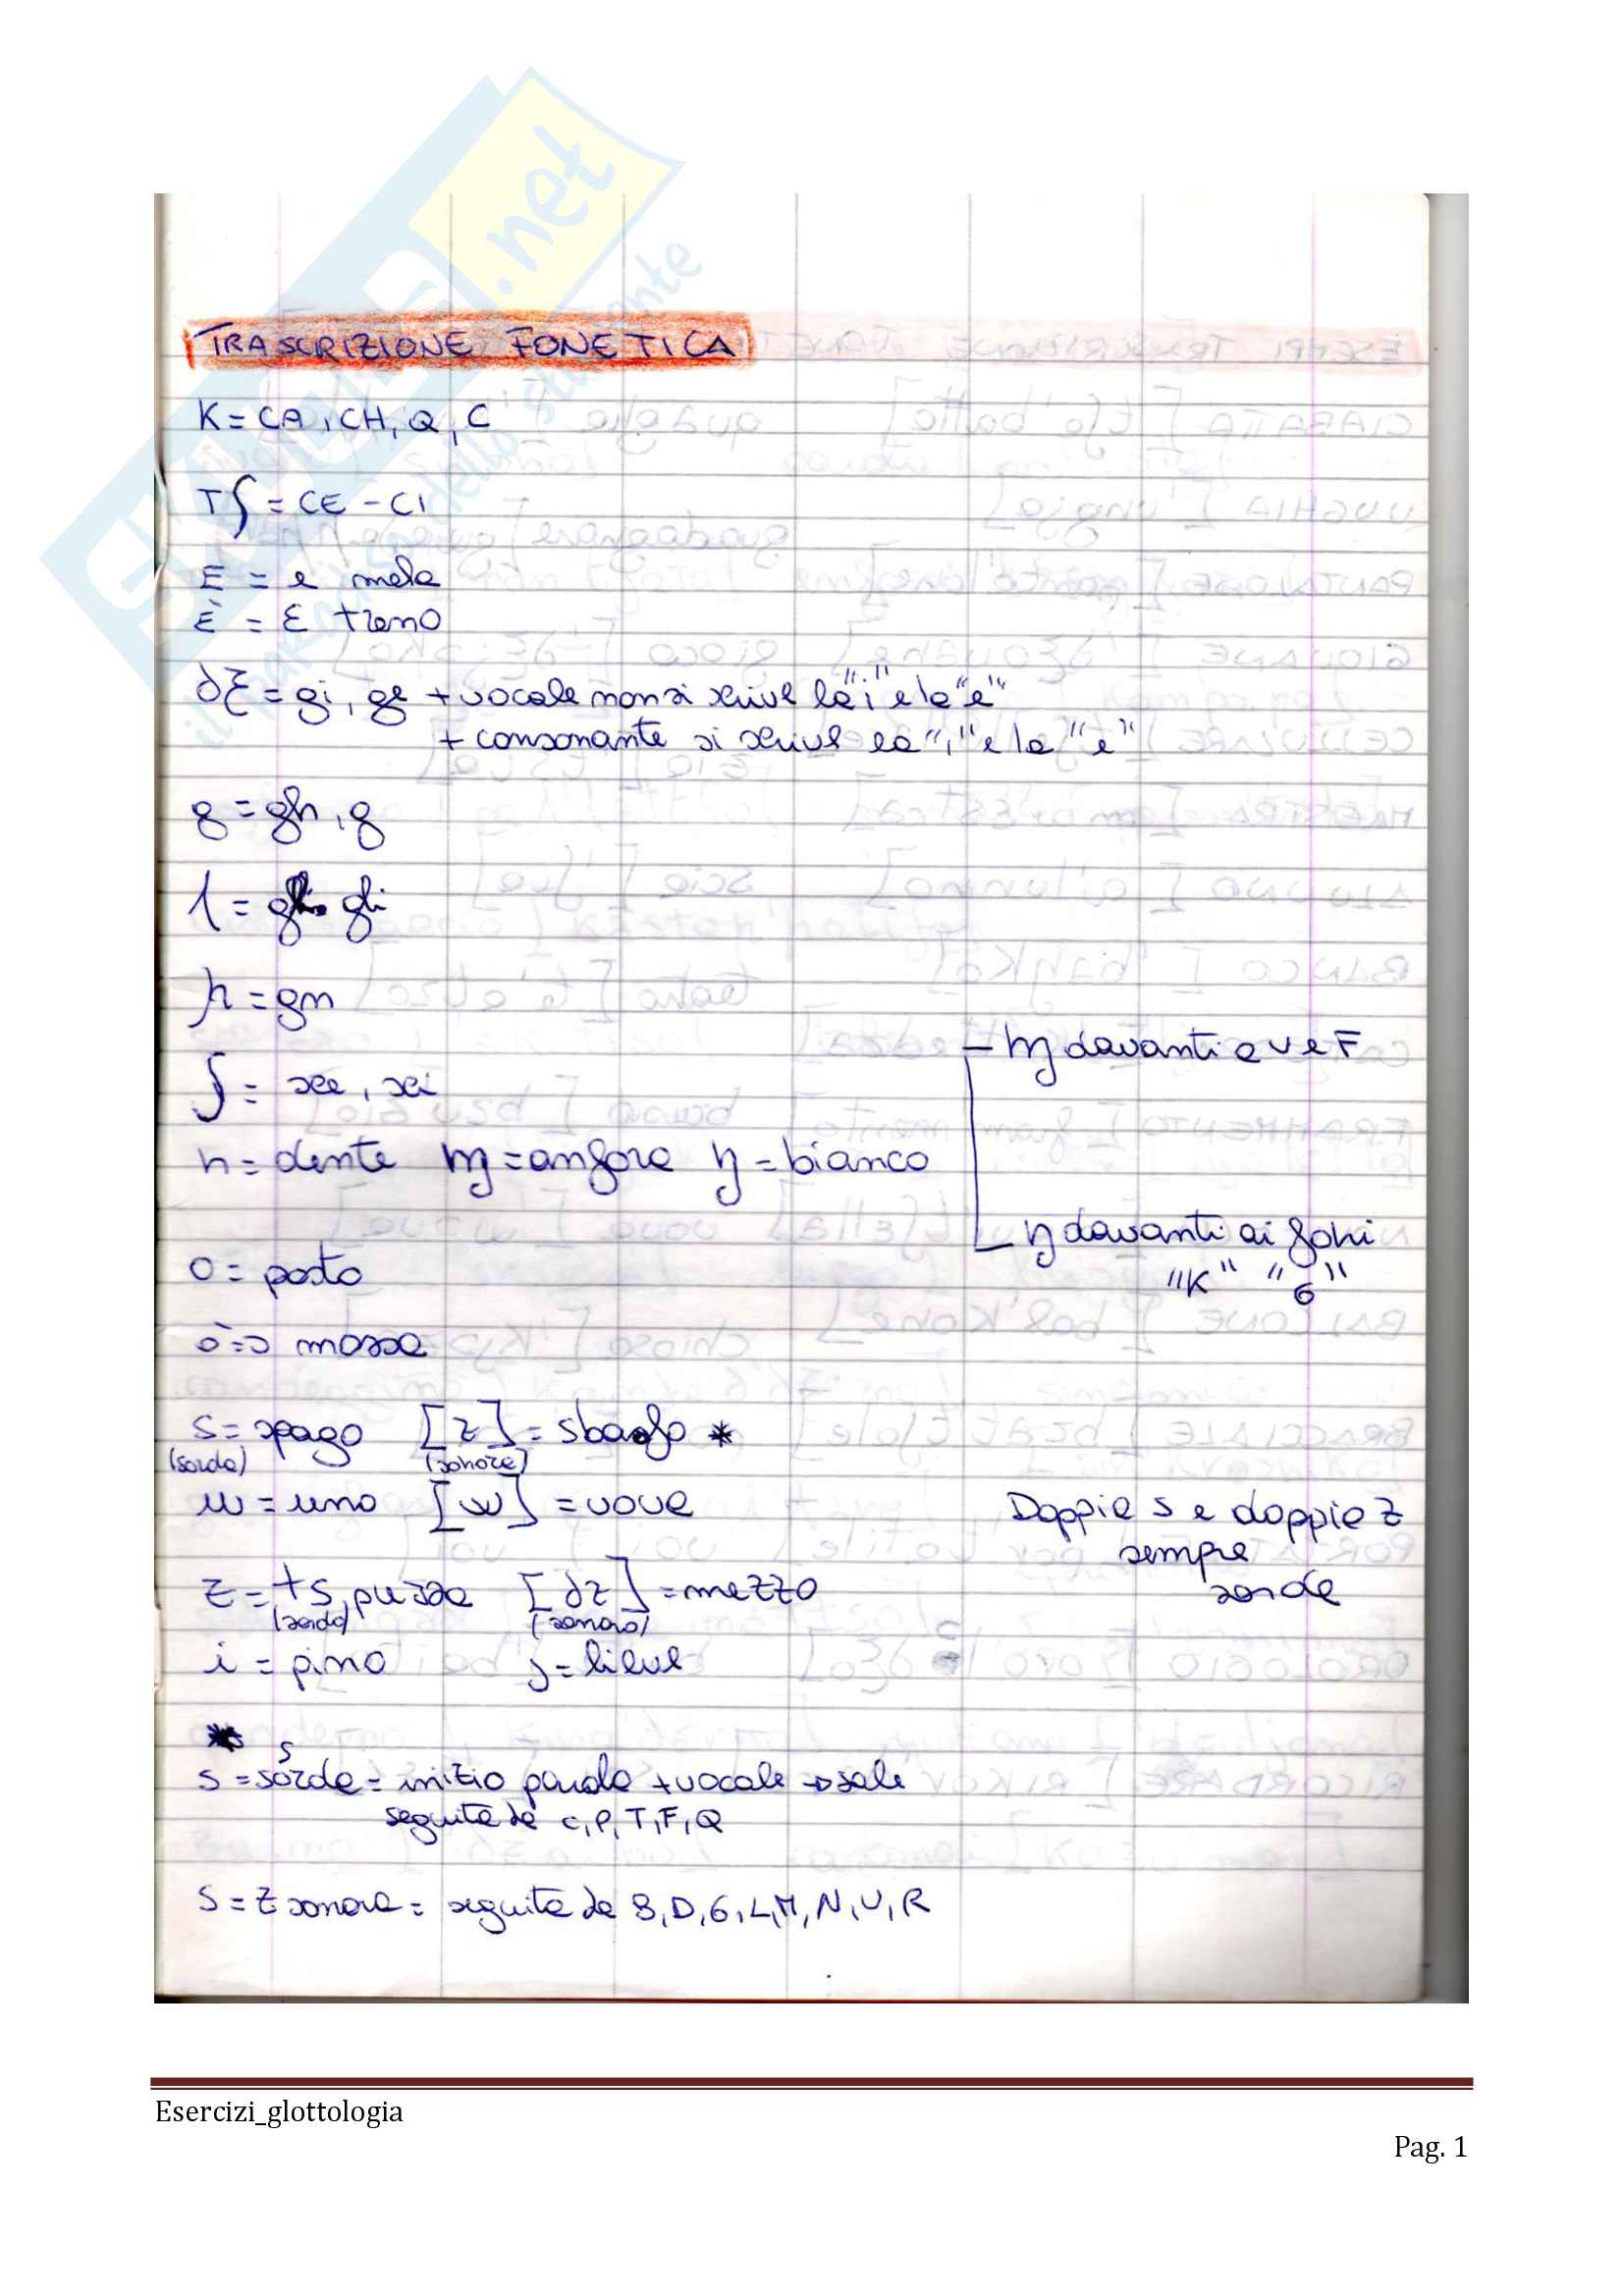 TRASCRIZIONE FONETICA
K = CA, CH, Q, C
Tʃ = CE - CI
E = e mela
È = ɛ treno
dʒ = gi, ge + vocale non si scrive la "i" e la "e"
+ consonante si scrive la "i" e la "e"
g = gh, g
ʎ = gli
ɲ = gn
ʃ = sce, sci
n = dente ɱ = anfora ŋ = bianco
- ɱ davanti a V e F
- ŋ davanti ai foni
"K" "G"
o = posto
ò = ɔ mossa
s = spago [z] = sbaglo *
(sorda) (sonora)
u = uno [w] = uova
Doppie s e doppie z
sempre
sorde
z = ts, puzza [dz] = mezzo
(sordo) (sonoro)
i = pino j = lieve
*
s = sorda = inizio parola + vocale → sale
seguita da C, P, T, F, Q
S = Z sonora = seguita da B, D, G, L, M, N, V, R
SKUOLA.net
il paradiso dello studente
Esercizi_glottologia
Pag. 1